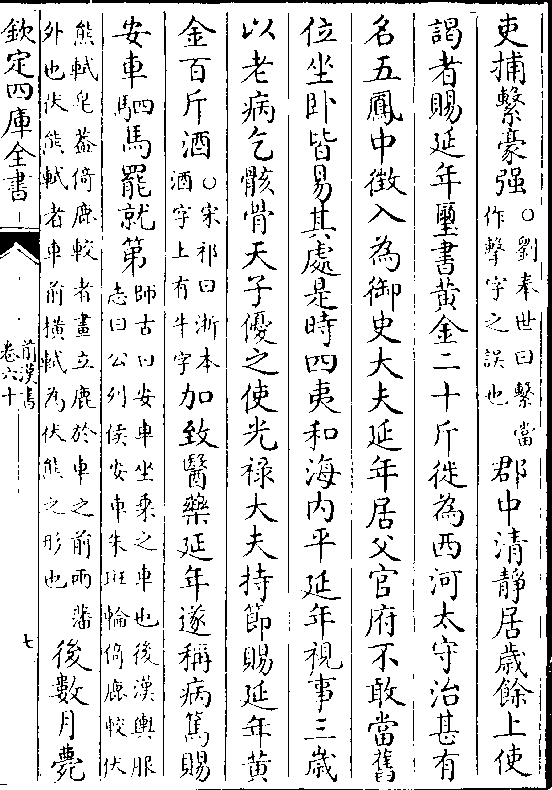 吏捕繫豪强○劉奉世曰繫當作擊字之誤也郡中清靜居歲餘上使
謁者賜延年璽書黄金二十斤徙為西河太守治甚有
名五鳳中徴入為御史大夫延年居父官府不敢當舊
位坐卧皆易其處是時四夷和海内平延年視事三歲
以老病乞骸骨天子優之使光禄大夫持節賜延年黄
金百斤酒○宋祁曰浙本酒字上有牛字加致醫藥延年遂稱病篤賜
安車駟馬罷就第師古曰安車坐乘之車也後漢輿服志曰公列侯安車朱班輪倚鹿較伏
熊軾皂葢倚鹿較者畫立鹿於車之前兩藩外也伏熊軾者車前横軾為伏熊之形也後數月薨
欽定四庫全書
前漢書
卷六十
七